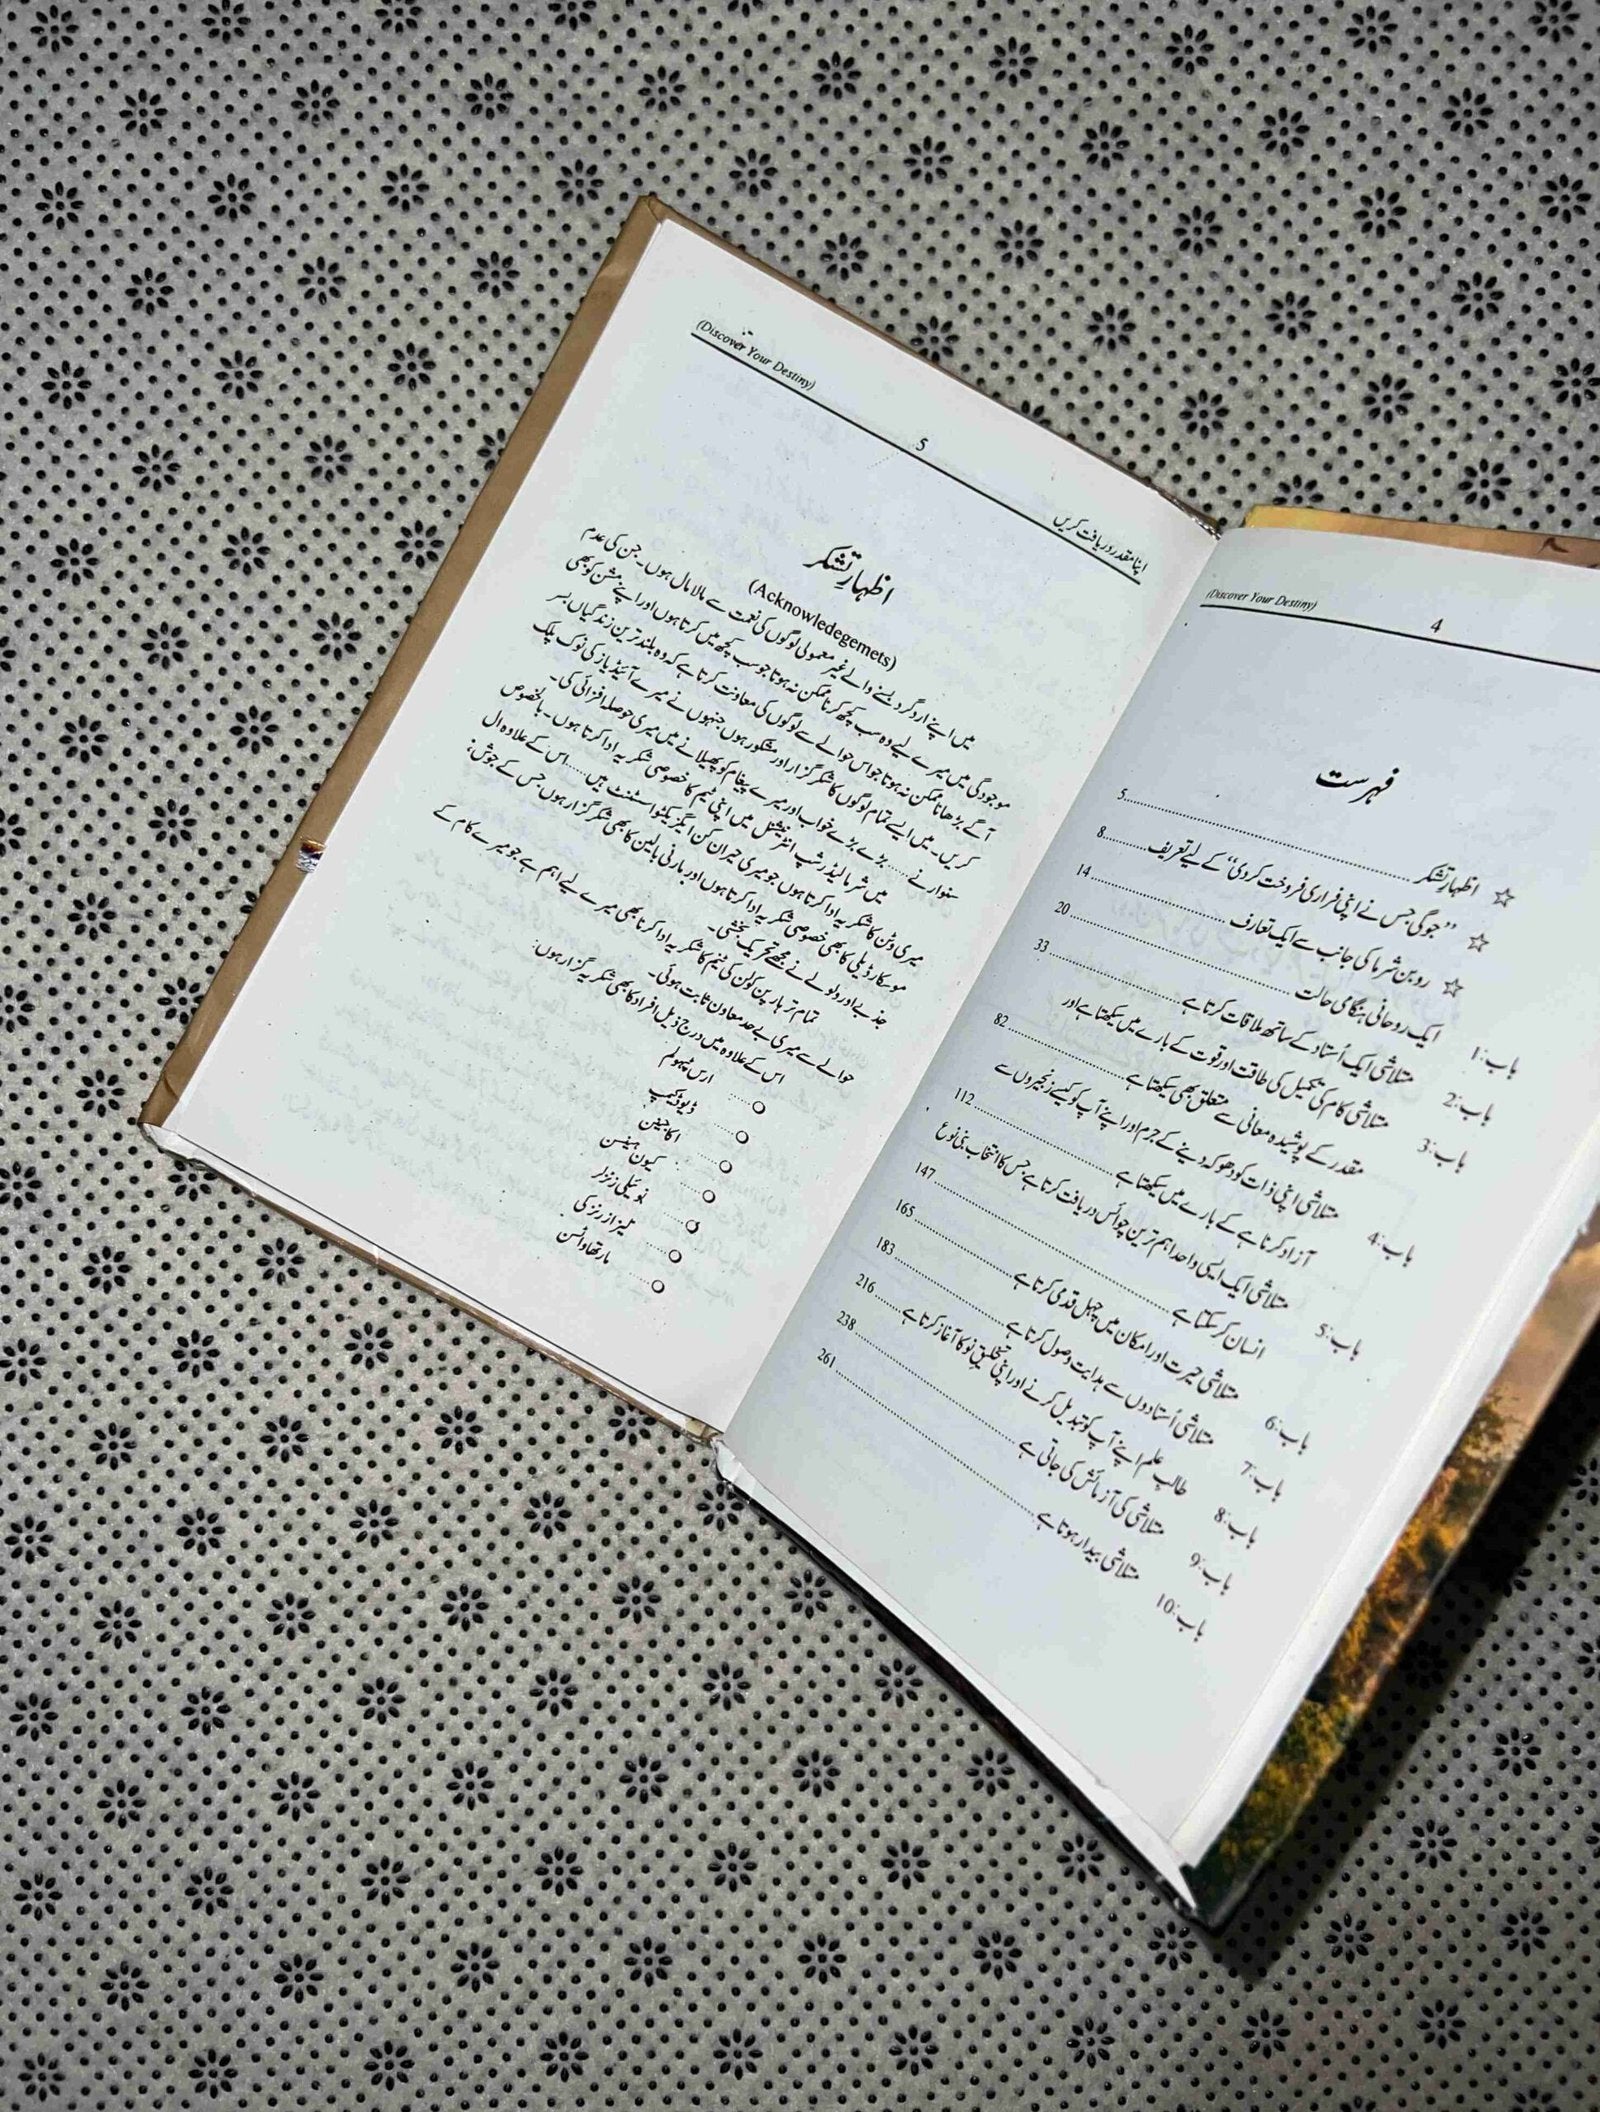 (Discover Your Destiny)
4
فہرست
☆ اظہارِ تشکر ........ 5
☆ ”جوگی جس نے اپنی فراری فروخت کر دی“ کے لیے تعریف ........ 8
☆ روبن شرما کی جانب سے ایک تعارف ........ 14
باب:1 ایک روحانی ہنگامی حالت ........ 20
باب:2 متلاشی ایک اُستاد کے ساتھ ملاقات کرتا ہے ........ 33
باب:3 متلاشی کام کی تکمیل کی طاقت اور قوت کے بارے میں سیکھتا ہے اور
مقدر کے پوشیدہ معانی سے متعلق بھی سیکھتا ہے ........ 82
باب:4 متلاشی اپنی ذات کو دھوکہ دینے کے جرم اور اپنے آپ کو کیسے زنجیروں سے
آزاد کرنا ہے کے بارے میں سیکھتا ہے ........ 112
باب:5 متلاشی ایک ایسی واحد اہم ترین چوائس دریافت کرتا ہے جس کا انتخاب بنی نوع
انسان کر سکتا ہے ........ 147
باب:6 متلاشی حیرت اور امکان میں چہل قدمی کرتا ہے ........ 165
باب:7 متلاشی اُستادوں سے ہدایت وصول کرتا ہے ........ 183
باب:8 طالبِ علم اپنے آپ کو تبدیل کرنے اور اپنی تخلیقِ نو کا آغاز کرتا ہے ........ 216
باب:9 متلاشی کی آزمائش کی جاتی ہے ........ 238
باب:10 متلاشی بیدار ہوتا ہے ........ 261
اپنا مقدر دریافت کریں
5
(Discover Your Destiny)
اظہارِ تشکر
(Acknowledegemets)
میں اپنے ارد گرد بسنے والے غیر معمولی لوگوں کی نعمت سے مالا مال ہوں۔ جن کی عدم
موجودگی میں میرے لیے وہ سب کچھ کرنا ممکن نہ ہوتا جو سب کچھ میں کرتا ہوں اور اپنے مشن کو بھی
آگے بڑھانا ممکن نہ ہوتا جو اس حوالے سے لوگوں کی معاونت کرتا ہے کہ وہ بلند ترین زندگیاں بسر
کریں۔ میں ایسے تمام لوگوں کا شکر گزار اور مشکور ہوں جنہوں نے میرے آئیڈیاز کی نوک پلک
سنوارنے ..... بڑے بڑے خواب اور میرے پیغام کو پھیلانے میں میری حوصلہ افزائی کی۔
میں شرما لیڈرشپ انٹرنیشنل میں اپنی ٹیم کا خصوصی شکریہ ادا کرتا ہوں۔ بالخصوص
میری وٹن کا شکریہ ادا کرتا ہوں جو میری حیران کن ایگزیکٹو اسسٹنٹ ہیں ..... اس کے علاوہ ال
موسکارڈیلی کا بھی خصوصی شکریہ ادا کرتا ہوں اور مارنی بالین کا بھی شکر گزار ہوں جس کے جوش،
جذبے اور ولولے نے مجھے تحریک بخشی۔
تمام تر ہارپن کولن کی ٹیم کا شکریہ ادا کرنا بھی میرے لیے اہم ہے جو میرے کام کے
حوالے سے میری بے حد معاون ثابت ہوئی۔
اس کے علاوہ میں درج ذیل افراد کا بھی شکریہ گزار ہوں:
○ ..... ارس ٹپہولم
○ ..... ڈیوڈ کیمپ
○ ..... اکا جینن
○ ..... کیون ہینسن
○ ..... نوئیلی زنزلر
○ ..... لیزا زرنزکی
○ ..... مارتھا واٹسن